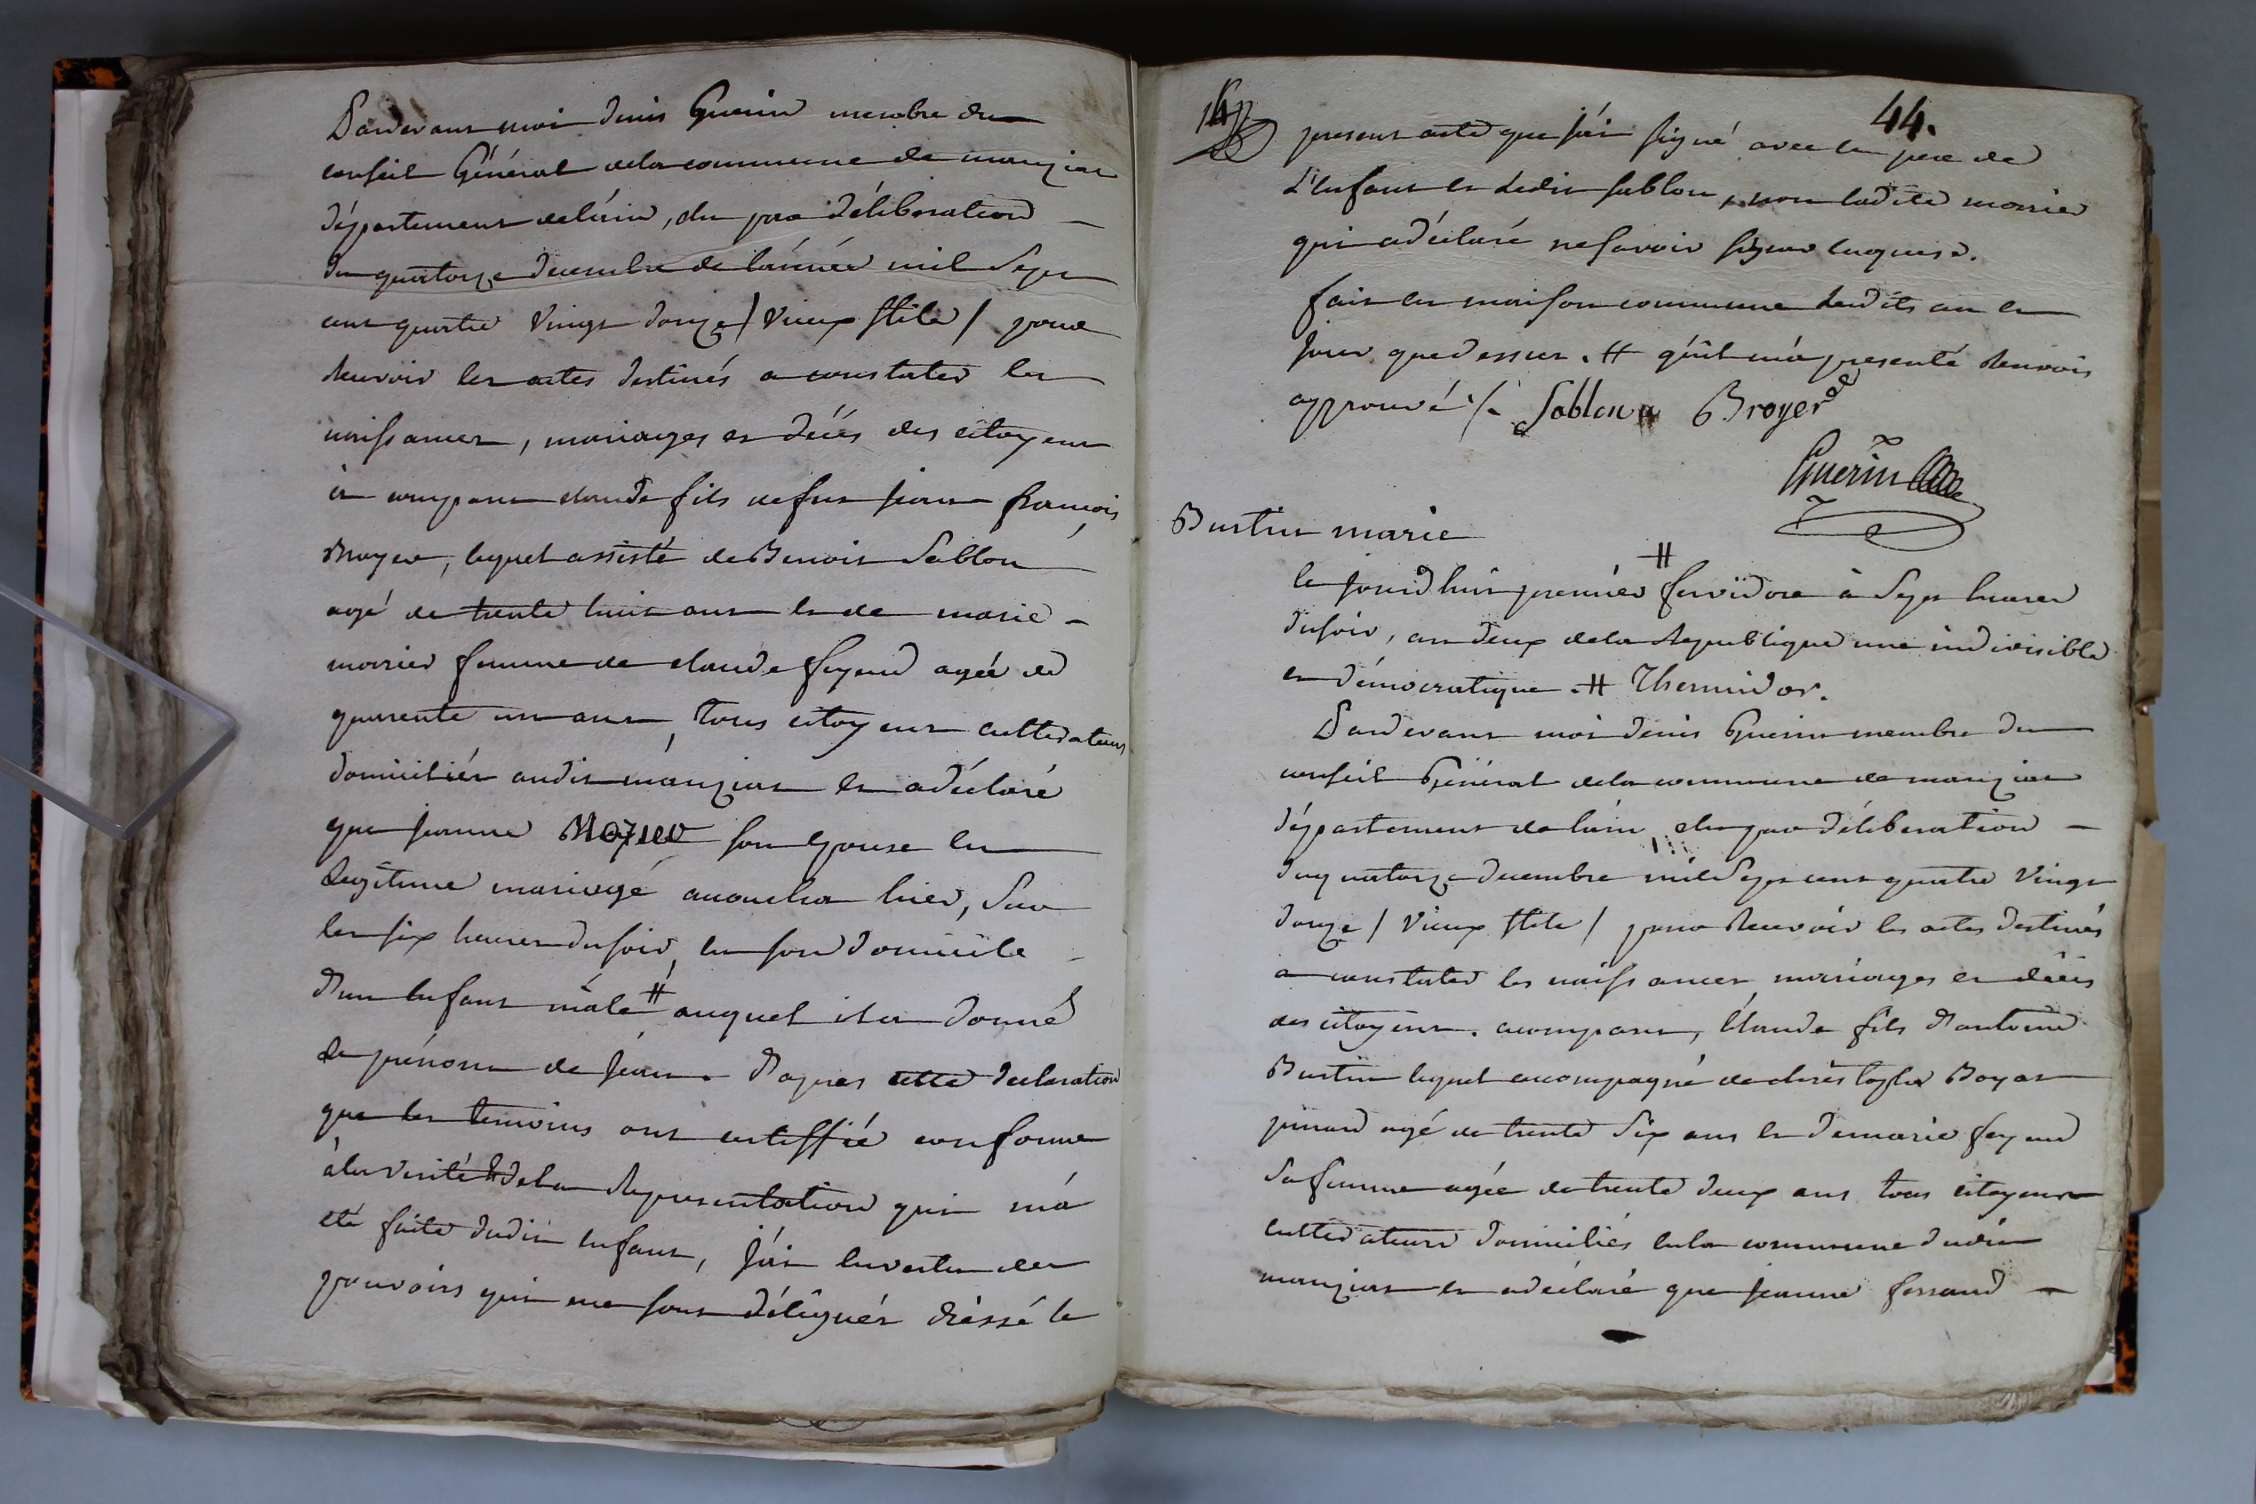 Pardevant moi denis Guerin membre du
conseil Général dela commune de manziat
département delain, elu par déliberation
du quatorze decembre de lánnée mil Sept
cent quatre vingt douze / vieux stile / pour
recevoir les actes destinés a constater les
naissances, mariages et décés des citoyens
a comparu claude fils de feu jean françois
Broyer, lequel assisté de Benoit Sablon
agé de trente huit ans et de marie
morier femme de claude feyeud agée de
quarente un ans, tous citoyens cultivateurs
domiciliés audit manziat et adéclaré
que jeanne son epouse en
legitime mariagé accoucha hier, sur
les six heures du soir, en son domicile
d'un enfant mâle # auquel il a donné
le prénom de jean. D'apres cette declaration
que les temoins ont certiffié conforme
à la verité & de la Representation qui má
été faite dudit enfant, j'ái en vertu des
pouvoirs qui me sont délégués dréssé le
44.
present acte que j'ái signé avec le pere de
L'enfant et Ledit Sablon, non ladite morier
qui adéclaré ne savoir signer enquise.
fait en maison commune Lesdits an et
jour que dessus. # qúil má presenté Renvois
approuvé /. Sablon Broyer
Guerin
Burtin marie
le jourdhui premier # fervidore à Sept heures
du soir, an deux dela Republique une indivisible
et démocratique. # Thermidor.
Pardevant moi denis Guerin membre du
conseil Général dela commune de manziat
département de lain, elu par déliberation
du quatorze decembre mil Sept cent quatre vingt
douze / vieux stile / pour Recevoir les actes destinés
a constater les naissances mariages et décés
des citoyens. acomparu, Claude fils d'antoine
Burtin lequel accompagné de christophe Boyat
agé de trente Six ans et de marie feyeud
Sa femme agée de trente deux ans tous citoyens
cultivateurs domiciliés en la commune dudit
manziat et adéclaré que jeanne ferrand